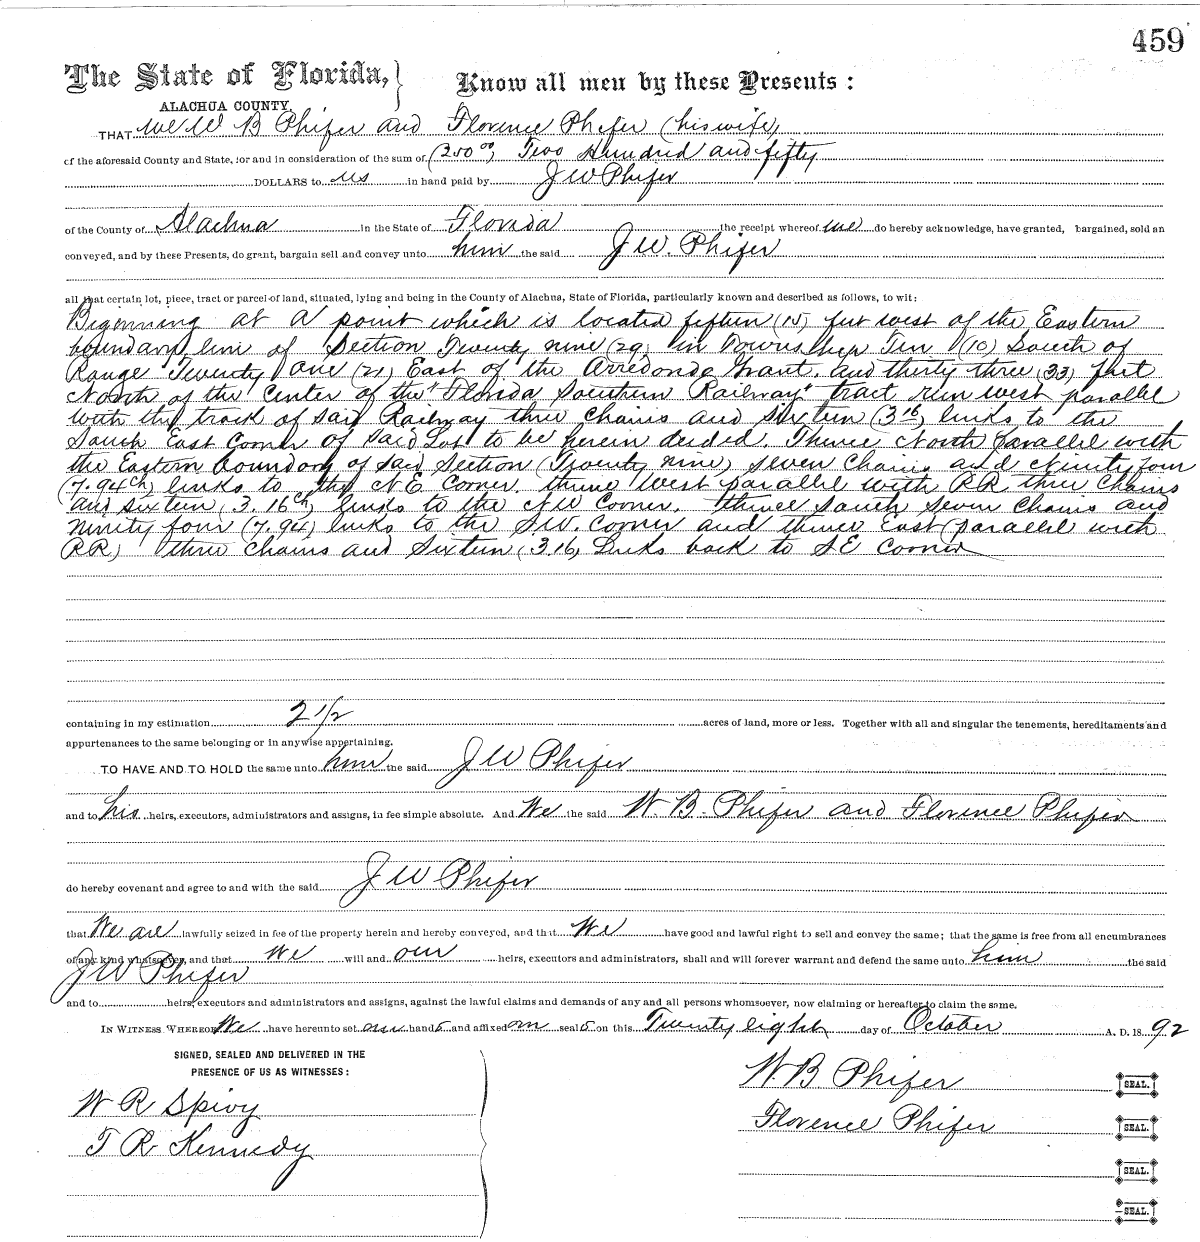 459
The State of Florida, } Know all men by these Presents :
ALACHUA COUNTY,
THAT we W B Phifer and Florence Phifer (his wife)
of the aforesaid County and State, for and in consideration of the sum of (250 00) Two Hundred and fifty
DOLLARS to us in hand paid by J W Phifer
of the County of Alachua in the State of Florida the receipt whereof we do hereby acknowledge, have granted, bargained, sold an
conveyed, and by these Presents, do grant, bargain sell and convey unto him the said J W. Phifer
all that certain lot, piece, tract or parcel of land, situated, lying and being in the County of Alachua, State of Florida, particularly known and described as follows, to wit:
Beginning at a point which is located fifteen (15) feet west of the Eastern
boundary line of Section Twenty nine (29) in Township Ten (10) South of
Range Twenty One (21) East of the Arredondo Grant. and thirty three (33) feet
North of the Center of the "Florida Southern Railway" tract run west parallel
with the track of said Railway three Chains and Sixteen (3.16) links to the
South East Corner of said Lot to be herein deeded. Thence North (parallel with
the Eastern boundary of said Section (Twenty nine) seven Chains and Ninety four
(7.94 ch) links to the NE Corner. thence West parallel with RR three Chains
and sixteen (3.16 ch) links to the NW Corner. thence South Seven Chains and
Ninety four (7.94) links to the S.W. Corner and thence East (parallel with
RR) three Chains and Sixteen (3.16) Links back to SE Corner
containing in my estimation 2 1/2 acres of land, more or less. Together with all and singular the tenements, hereditaments and
appurtenances to the same belonging or in anywise appertaining.
TO HAVE AND TO HOLD the same unto him the said J W Phifer
and to his heirs, executors, administrators and assigns, in fee simple absolute. And We the said W. B. Phifer and Florence Phifer
do hereby covenant and agree to and with the said J W Phifer
that We are lawfully seized in fee of the property herein and hereby conveyed, and that We have good and lawful right to sell and convey the same; that the same is free from all encumbrances
of any kind whatsoever, and that We will and our heirs, executors and administrators, shall and will forever warrant and defend the same unto him the said
J W Phifer
and to heirs, executors and administrators and assigns, against the lawful claims and demands of any and all persons whomsoever, now claiming or hereafter to claim the same.
IN WITNESS WHEREOF We have hereunto set our hands and affixed our seals on this Twenty eight day of October A. D. 1892
SIGNED, SEALED AND DELIVERED IN THE
PRESENCE OF US AS WITNESSES:
W. B Phifer SEAL.
W R Spivy
Florence Phifer SEAL.
T R Kennedy
SEAL.
SEAL.